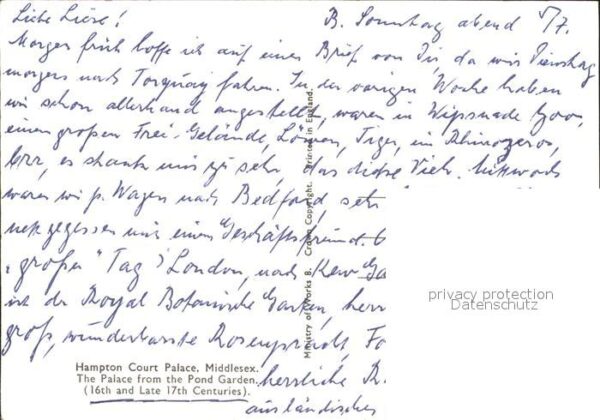 Liebe Liese!
B. Sonntag abend 5/7.
Morgen früh hoffe ich auf einen Brief von Dir, da wir Dienstag
morgens nach Torquay fahren. In der vorigen Woche haben
wir schon allerhand angestellt, waren in Wipsnade Zoo,
einen großen Frei-Gelände, Löwen, Tiger, ein Rhinozeros,
brr, es stank mir zu sehr, das dicke Vieh. Mittwoch
waren wir p. Wagen nach Bedford, sehr
nett gegessen mit einem Geschäftsfreund.
"großer" Tag London, nach Kew Ga
ist der Royal Botanische Garten, herr
groß, wunderbarste Rosenpracht, Fo
herrliche R.
ausländischen
Hampton Court Palace, Middlesex.
The Palace from the Pond Garden.
(16th and Late 17th Centuries).
Ministry of Works B. Crown Copyright. Printed in England.
privacy protection
Datenschutz